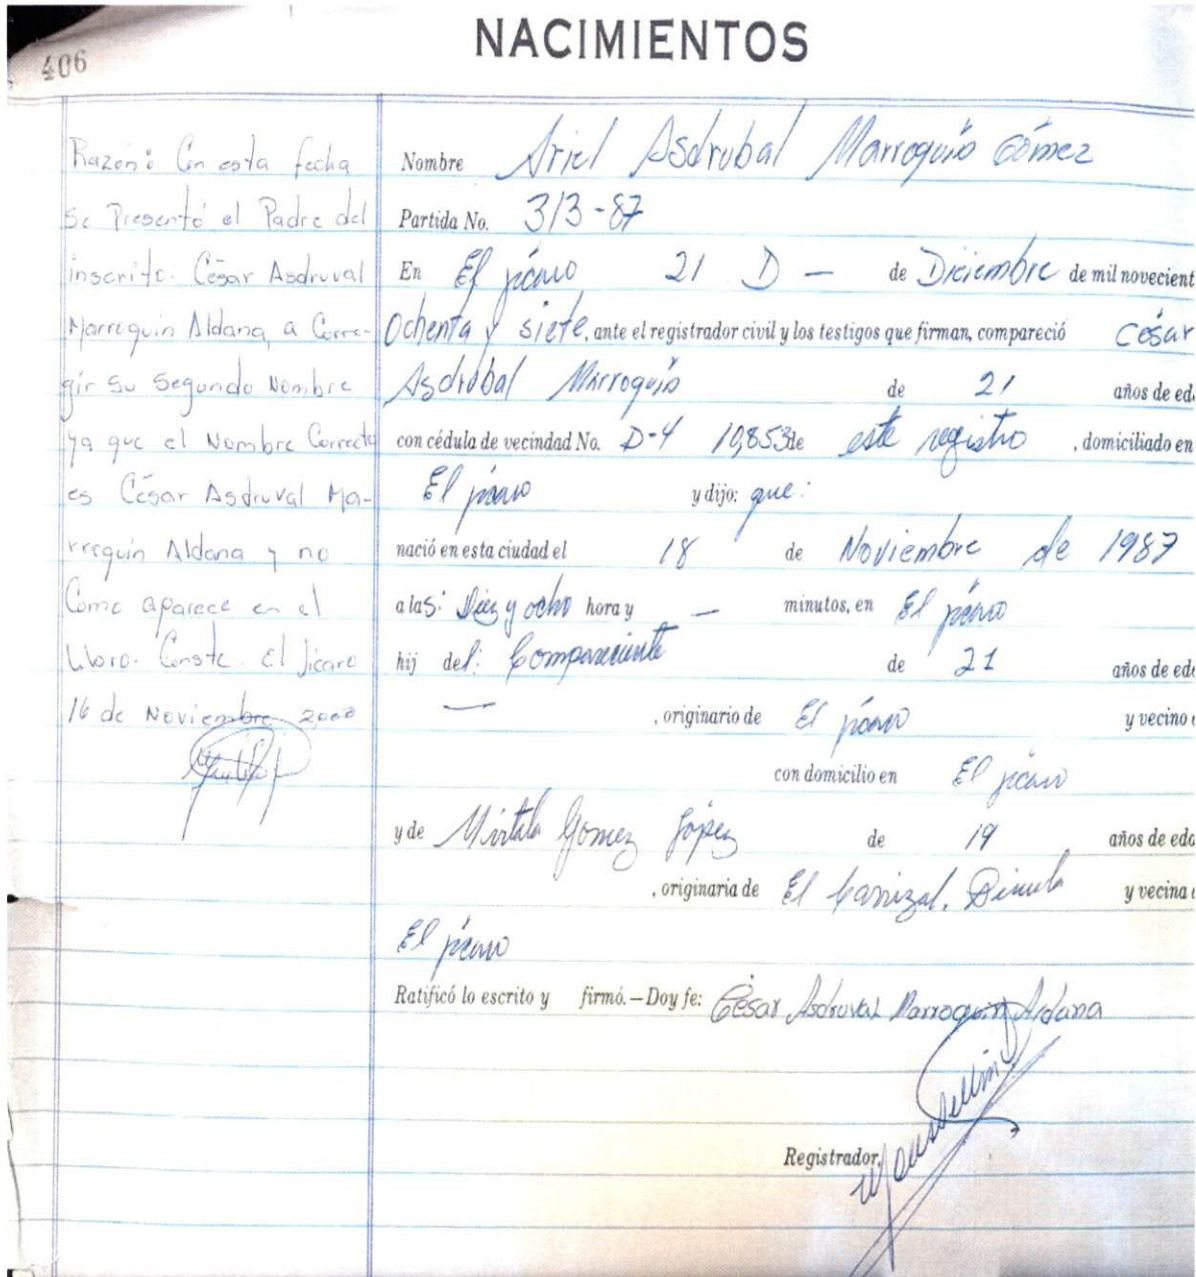 NACIMIENTOS
406
Razón: Con esta fecha
Se Presentó el Padre del
inscrito. César Asdruval
Marroquin Aldana, a Corre-
gir su Segundo Nombre
ya que el Nombre Correcto
es César Asdruval Ma-
rroquin Aldana y no
Como aparece en el
Libro. Conste. El Jícaro
16 de Noviembre 2000
Nombre Ariel Asdrubal Marroquín Gómez
Partida No. 313-87
En El jícaro 21 D — de Diciembre de mil novecient
Ochenta y siete, ante el registrador civil y los testigos que firman, compareció César
Asdrubal Marroquín de 21 años de eda
con cédula de vecindad No. D-4 10,853 de este registro, domiciliado en
El jícaro y dijo: que:
nació en esta ciudad el 18 de Noviembre de 1987
a las: Diez y ocho hora y — minutos, en El jícaro
hij del: Compareciente de 21 años de eda
— , originario de El jícaro y vecino
con domicilio en El jícaro
y de Mirtala Gomez López de 19 años de eda
, originaria de El Carrizal, y vecina
El jícaro
Ratificó lo escrito y firmó.—Doy fe: César Asdruval Marroquin Aldana
Registrador,